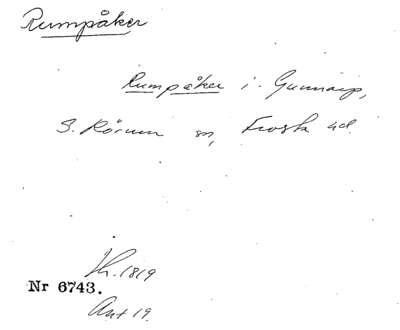 Rumpåker
Rumpåker i Gunnarp,
S. Rörum sn, Frosta hd.
Nr 6743.